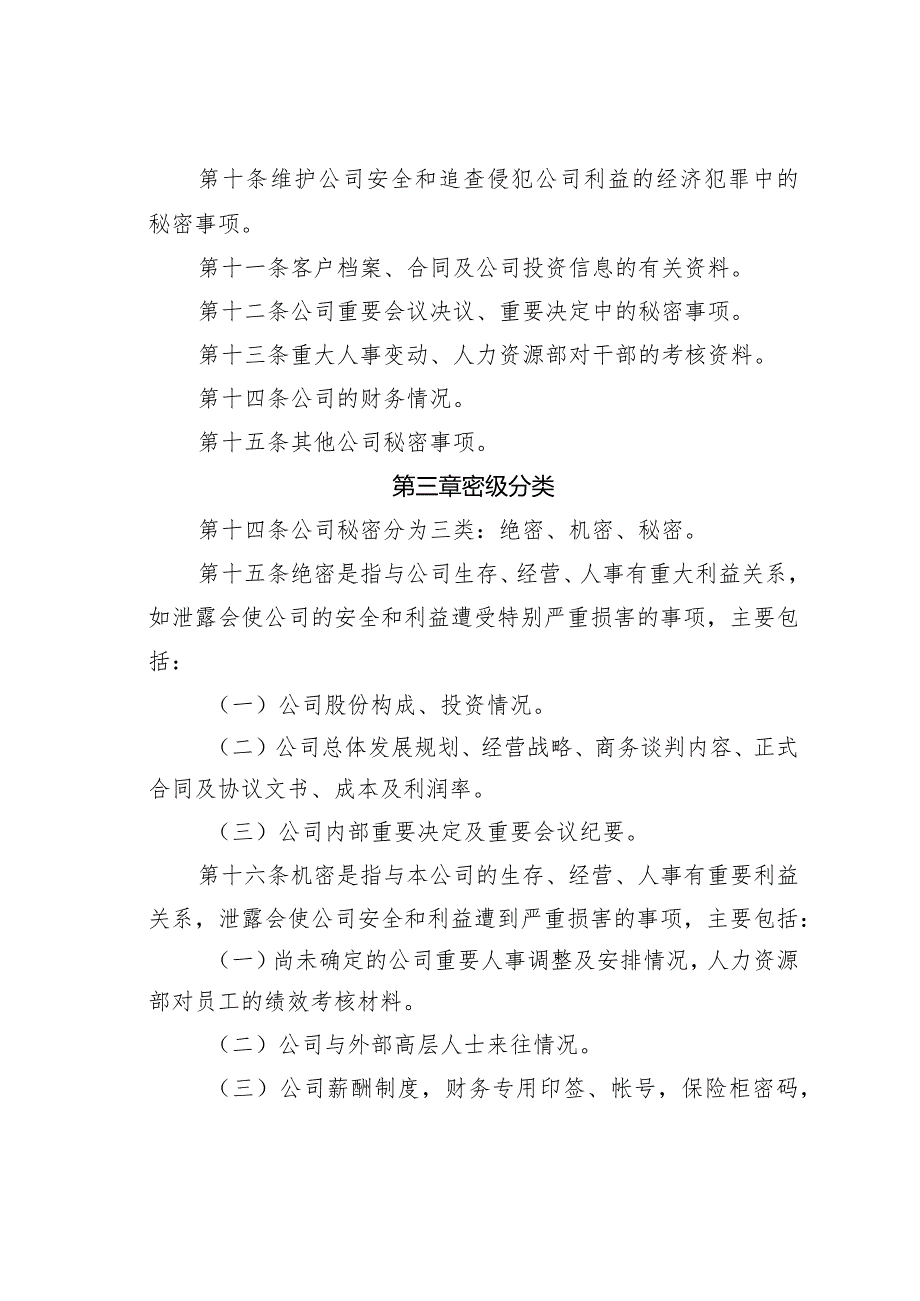 第十条维护公司安全和追查侵犯公司利益的经济犯罪中的
秘密事项。
第十一条客户档案、合同及公司投资信息的有关资料。
第十二条公司重要会议决议、重要决定中的秘密事项。
第十三条重大人事变动、人力资源部对干部的考核资料。
第十四条公司的财务情况。
第十五条其他公司秘密事项。
第三章密级分类
第十四条公司秘密分为三类：绝密、机密、秘密。
第十五条绝密是指与公司生存、经营、人事有重大利益关系，
如泄露会使公司的安全和利益遭受特别严重损害的事项，主要包
括：
（一）公司股份构成、投资情况。
（二）公司总体发展规划、经营战略、商务谈判内容、正式
合同及协议文书、成本及利润率。
（三）公司内部重要决定及重要会议纪要。
第十六条机密是指与本公司的生存、经营、人事有重要利益
关系，泄露会使公司安全和利益遭到严重损害的事项，主要包括：
（一）尚未确定的公司重要人事调整及安排情况，人力资源
部对员工的绩效考核材料。
（二）公司与外部高层人士来往情况。
（三）公司薪酬制度，财务专用印签、帐号，保险柜密码，